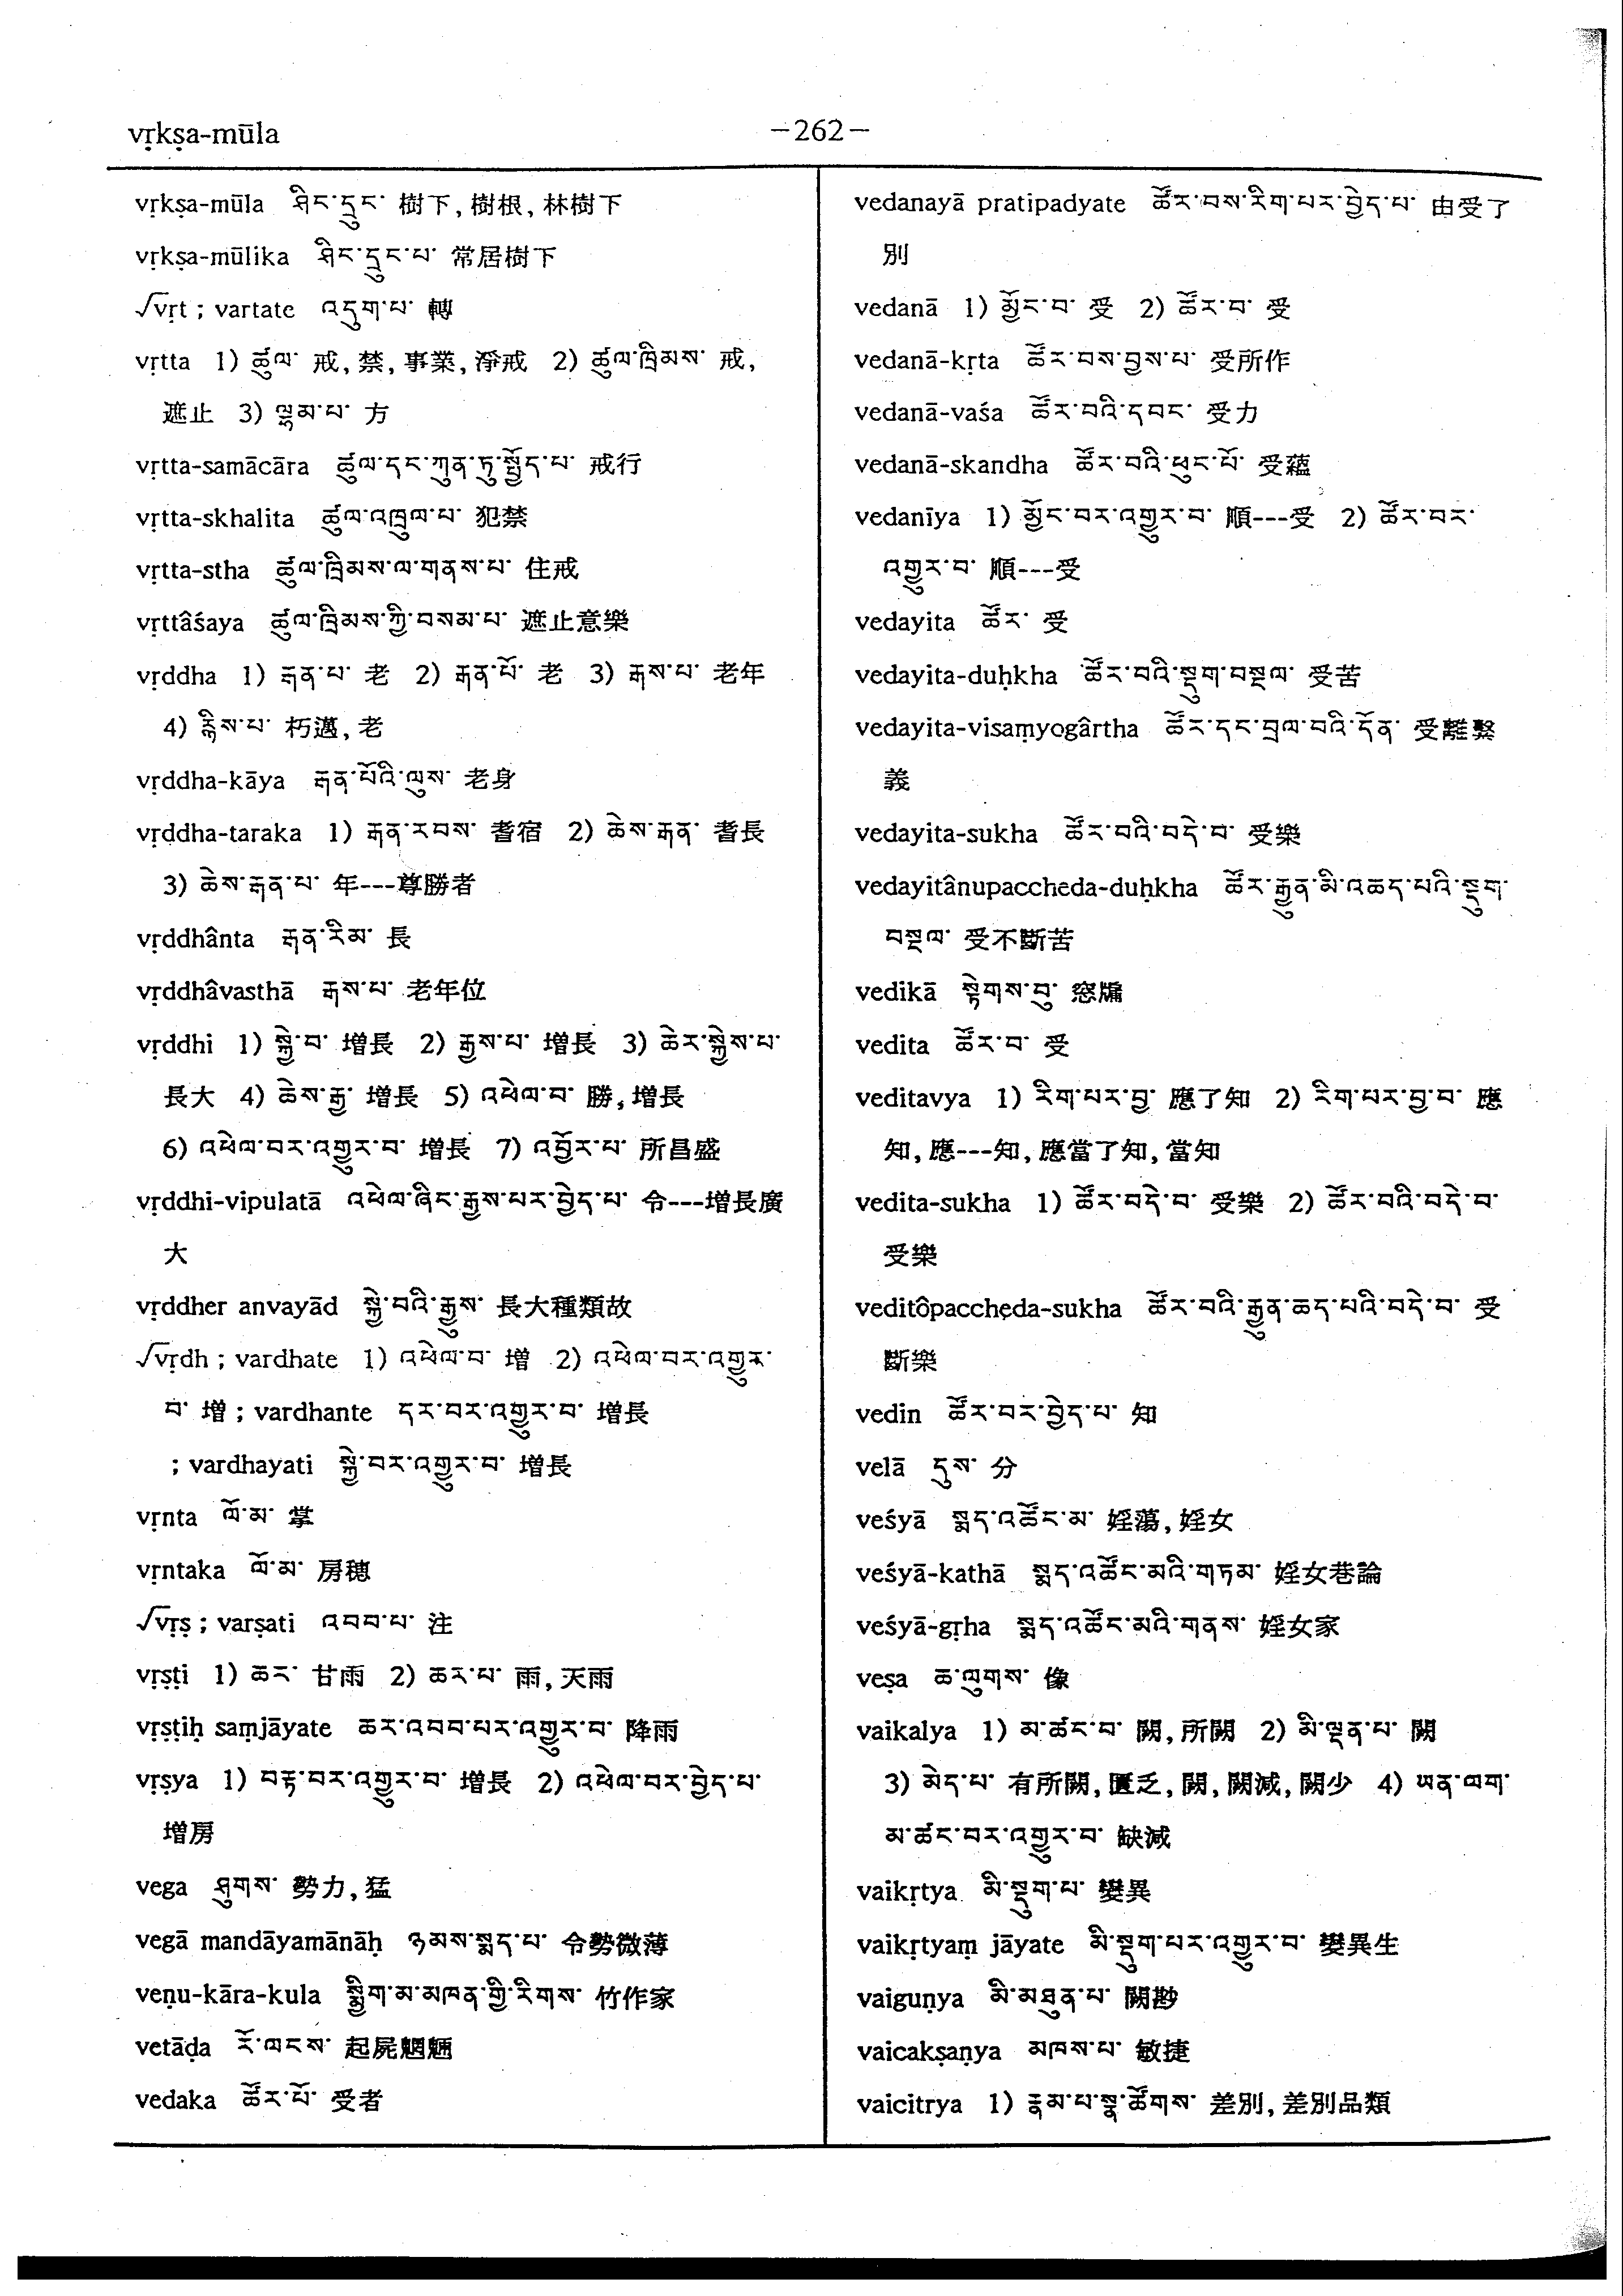 vṛkṣa-mūla
—262—
vṛkṣa-mūla ཤིང་དྲུང་ 樹下, 樹根, 林樹下
vṛkṣa-mūlika ཤིང་དྲུང་པ་ 常居樹下
√vṛt ; vartate འདུག་པ་ 轉
vṛtta 1) ཚུལ་ 戒, 禁, 事業, 淨戒 2) ཚུལ་ཁྲིམས་ 戒,
遮止 3) ལྷམ་པ་ 方
vṛtta-samācāra ཚུལ་དང་ཀུན་ཏུ་སྤྱོད་པ་ 戒行
vṛtta-skhalita ཚུལ་འཁྲུལ་པ་ 犯禁
vṛtta-stha ཚུལ་ཁྲིམས་ལ་གནས་པ་ 住戒
vṛttâśaya ཚུལ་ཁྲིམས་ཀྱི་བསམ་པ་ 遮止意樂
vṛddha 1) རྒན་པ་ 老 2) རྒན་པོ་ 老 3) རྒས་པ་ 老年
4) རྙིས་པ་ 朽邁, 老
vṛddha-kāya རྒན་པོའི་ལུས་ 老身
vṛddha-taraka 1) རྒན་རབས་ 耆宿 2) ཆེས་རྒན་ 耆長
3) ཆེས་རྒན་པ་ 年---尊勝者
vṛddhânta རྒན་རིམ་ 長
vṛddhâvasthā རྒས་པ་ 老年位
vṛddhi 1) སྐྱེ་བ་ 增長 2) རྒྱས་པ་ 增長 3) ཆེར་སྐྱེས་པ་
長大 4) ཆེས་རྒྱ་ 增長 5) འཕེལ་བ་ 勝, 增長
6) འཕེལ་བར་འགྱུར་བ་ 增長 7) འབྱོར་པ་ 所昌盛
vṛddhi-vipulatā འཕེལ་ཞིང་རྒྱས་པར་བྱེད་པ་ 令---增長廣
大
vṛddher anvayād སྐྱེ་བའི་རྒྱུས་ 長大種類故
√vṛdh ; vardhate 1) འཕེལ་བ་ 增 2) འཕེལ་བར་འགྱུར་
བ་ 增 ; vardhante དར་བར་འགྱུར་བ་ 增長
; vardhayati སྐྱེ་བར་འགྱུར་བ་ 增長
vṛnta ལོ་མ་ 掌
vṛntaka ལོ་མ་ 房穂
√vṛṣ ; varṣati འབབ་པ་ 注
vṛṣṭi 1) ཆར་ 甘雨 2) ཆར་པ་ 雨, 天雨
vṛṣṭiḥ saṃjāyate ཆར་འབབ་པར་འགྱུར་བ་ 降雨
vṛṣya 1) བརྟ་བར་འགྱུར་བ་ 增長 2) འཕེལ་བར་བྱེད་པ་
增房
vega ཤུགས་ 勢力, 猛
vegā mandāyamānāḥ ཉམས་སྨད་པ་ 令勢微薄
veṇu-kāra-kula སྨྱིག་མ་མཁན་གྱི་རིགས་ 竹作家
vetāḍa རོ་ལངས་ 起屍魍魎
vedaka ཚོར་པོ་ 受者
vedanayā pratipadyate ཚོར་བས་རིག་པར་བྱེད་པ་ 由受了
別
vedanā 1) མྱོང་བ་ 受 2) ཚོར་བ་ 受
vedanā-kṛta ཚོར་བས་བྱས་པ་ 受所作
vedanā-vaśa ཚོར་བའི་དབང་ 受力
vedanā-skandha ཚོར་བའི་ཕུང་པོ་ 受蘊
vedanīya 1) མྱོང་བར་འགྱུར་བ་ 順---受 2) ཚོར་བར་
འགྱུར་བ་ 順---受
vedayita ཚོར་ 受
vedayita-duḥkha ཚོར་བའི་སྡུག་བསྔལ་ 受苦
vedayita-visaṃyogârtha ཚོར་དང་བྲལ་བའི་དོན་ 受離繫
義
vedayita-sukha ཚོར་བའི་བདེ་བ་ 受樂
vedayitânupaccheda-duḥkha ཚོར་རྒྱུན་མི་འཆད་པའི་སྡུག་
བསྔལ་ 受不斷苦
vedikā སྟེགས་བུ་ 窓牖
vedita ཚོར་བ་ 受
veditavya 1) རིག་པར་བྱ་ 應了知 2) རིག་པར་བྱ་བ་ 應
知, 應---知, 應當了知, 當知
vedita-sukha 1) ཚོར་བདེ་བ་ 受樂 2) ཚོར་བའི་བདེ་བ་
受樂
veditôpaccheda-sukha ཚོར་བའི་རྒྱུན་ཆད་པའི་བདེ་བ་ 受
斷樂
vedin ཚོར་བར་བྱེད་པ་ 知
velā དུས་ 分
veśyā སྨད་འཚོང་མ་ 婬蕩, 婬女
veśyā-kathā སྨད་འཚོང་མའི་གཏམ་ 婬女巷論
veśyā-gṛha སྨད་འཚོང་མའི་གནས་ 婬女家
veṣa ཆ་ལུགས་ 像
vaikalya 1) མ་ཚང་བ་ 闕, 所闕 2) མི་ལྡན་པ་ 闕
3) མེད་པ་ 有所闕, 匱乏, 闕, 闕減, 闕少 4) ཡན་ལག་
མ་ཚང་བར་འགྱུར་བ་ 缺減
vaikṛtya མི་སྡུག་པ་ 變異
vaikṛtyaṃ jāyate མི་སྡུག་པར་འགྱུར་བ་ 變異生
vaiguṇya མི་མཐུན་པ་ 闕尠
vaicakṣaṇya མཁས་པ་ 敏捷
vaicitrya 1) རྣམ་པ་སྣ་ཚོགས་ 差別, 差別品類